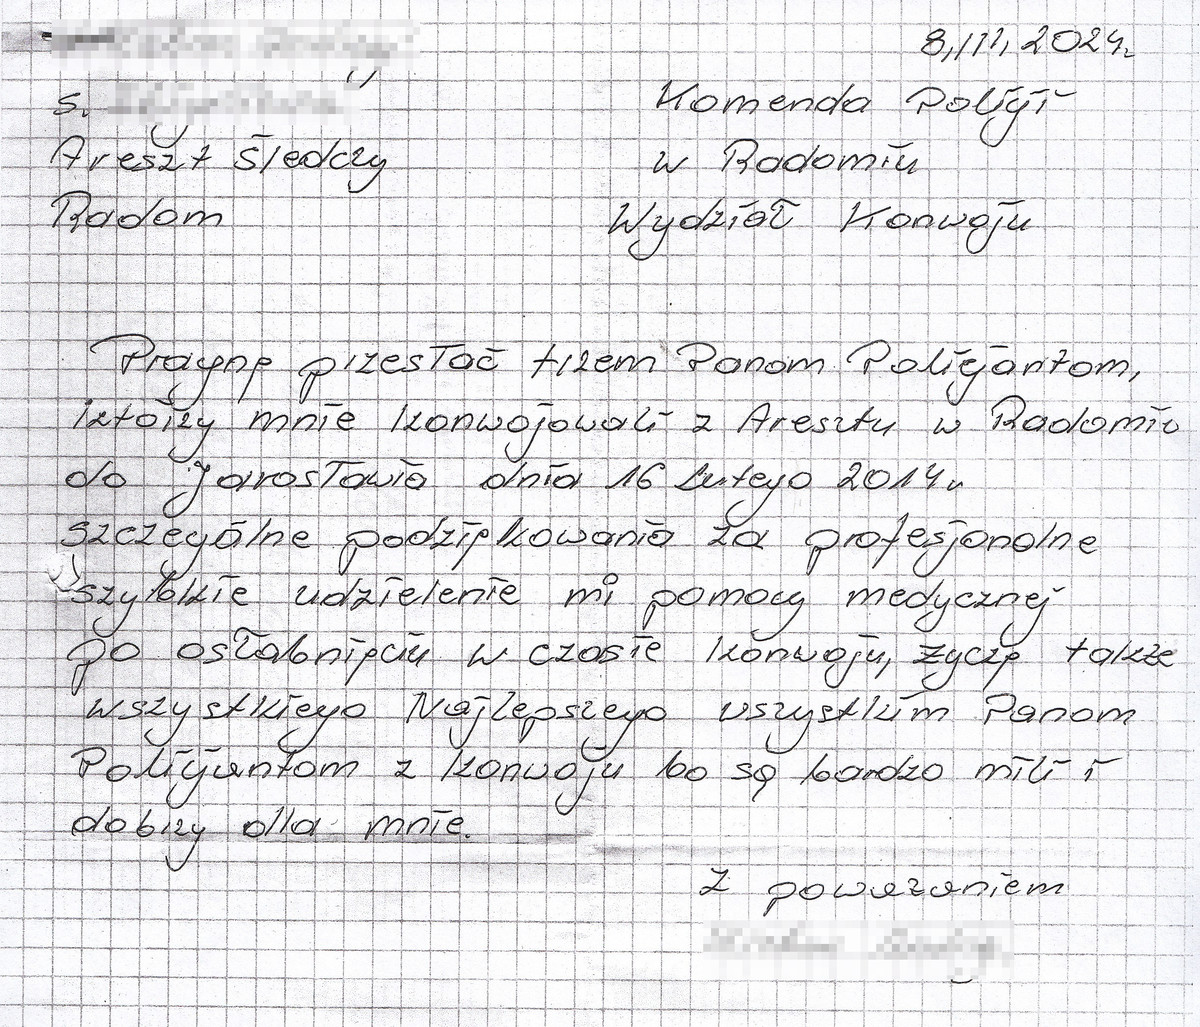 8.III.2024r.
s.
Komenda Policji
Areszt śledczy
w Radomiu
Radom
Wydział Konwoju
Pragnę przesłać trzem Panom Policjantom,
którzy mnie konwojowali z Aresztu w Radomiu
do Jarosławia dnia 16 Lutego 2014r
szczególne podziękowania za profesjonalne
szybkie udzielenie mi pomocy medycznej
po osłabnięciu w czasie konwoju, życzę także
wszystkiego Najlepszego wszystkim Panom
Policjantom z konwoju bo są bardzo mili i
dobrzy dla mnie.
Z poważaniem